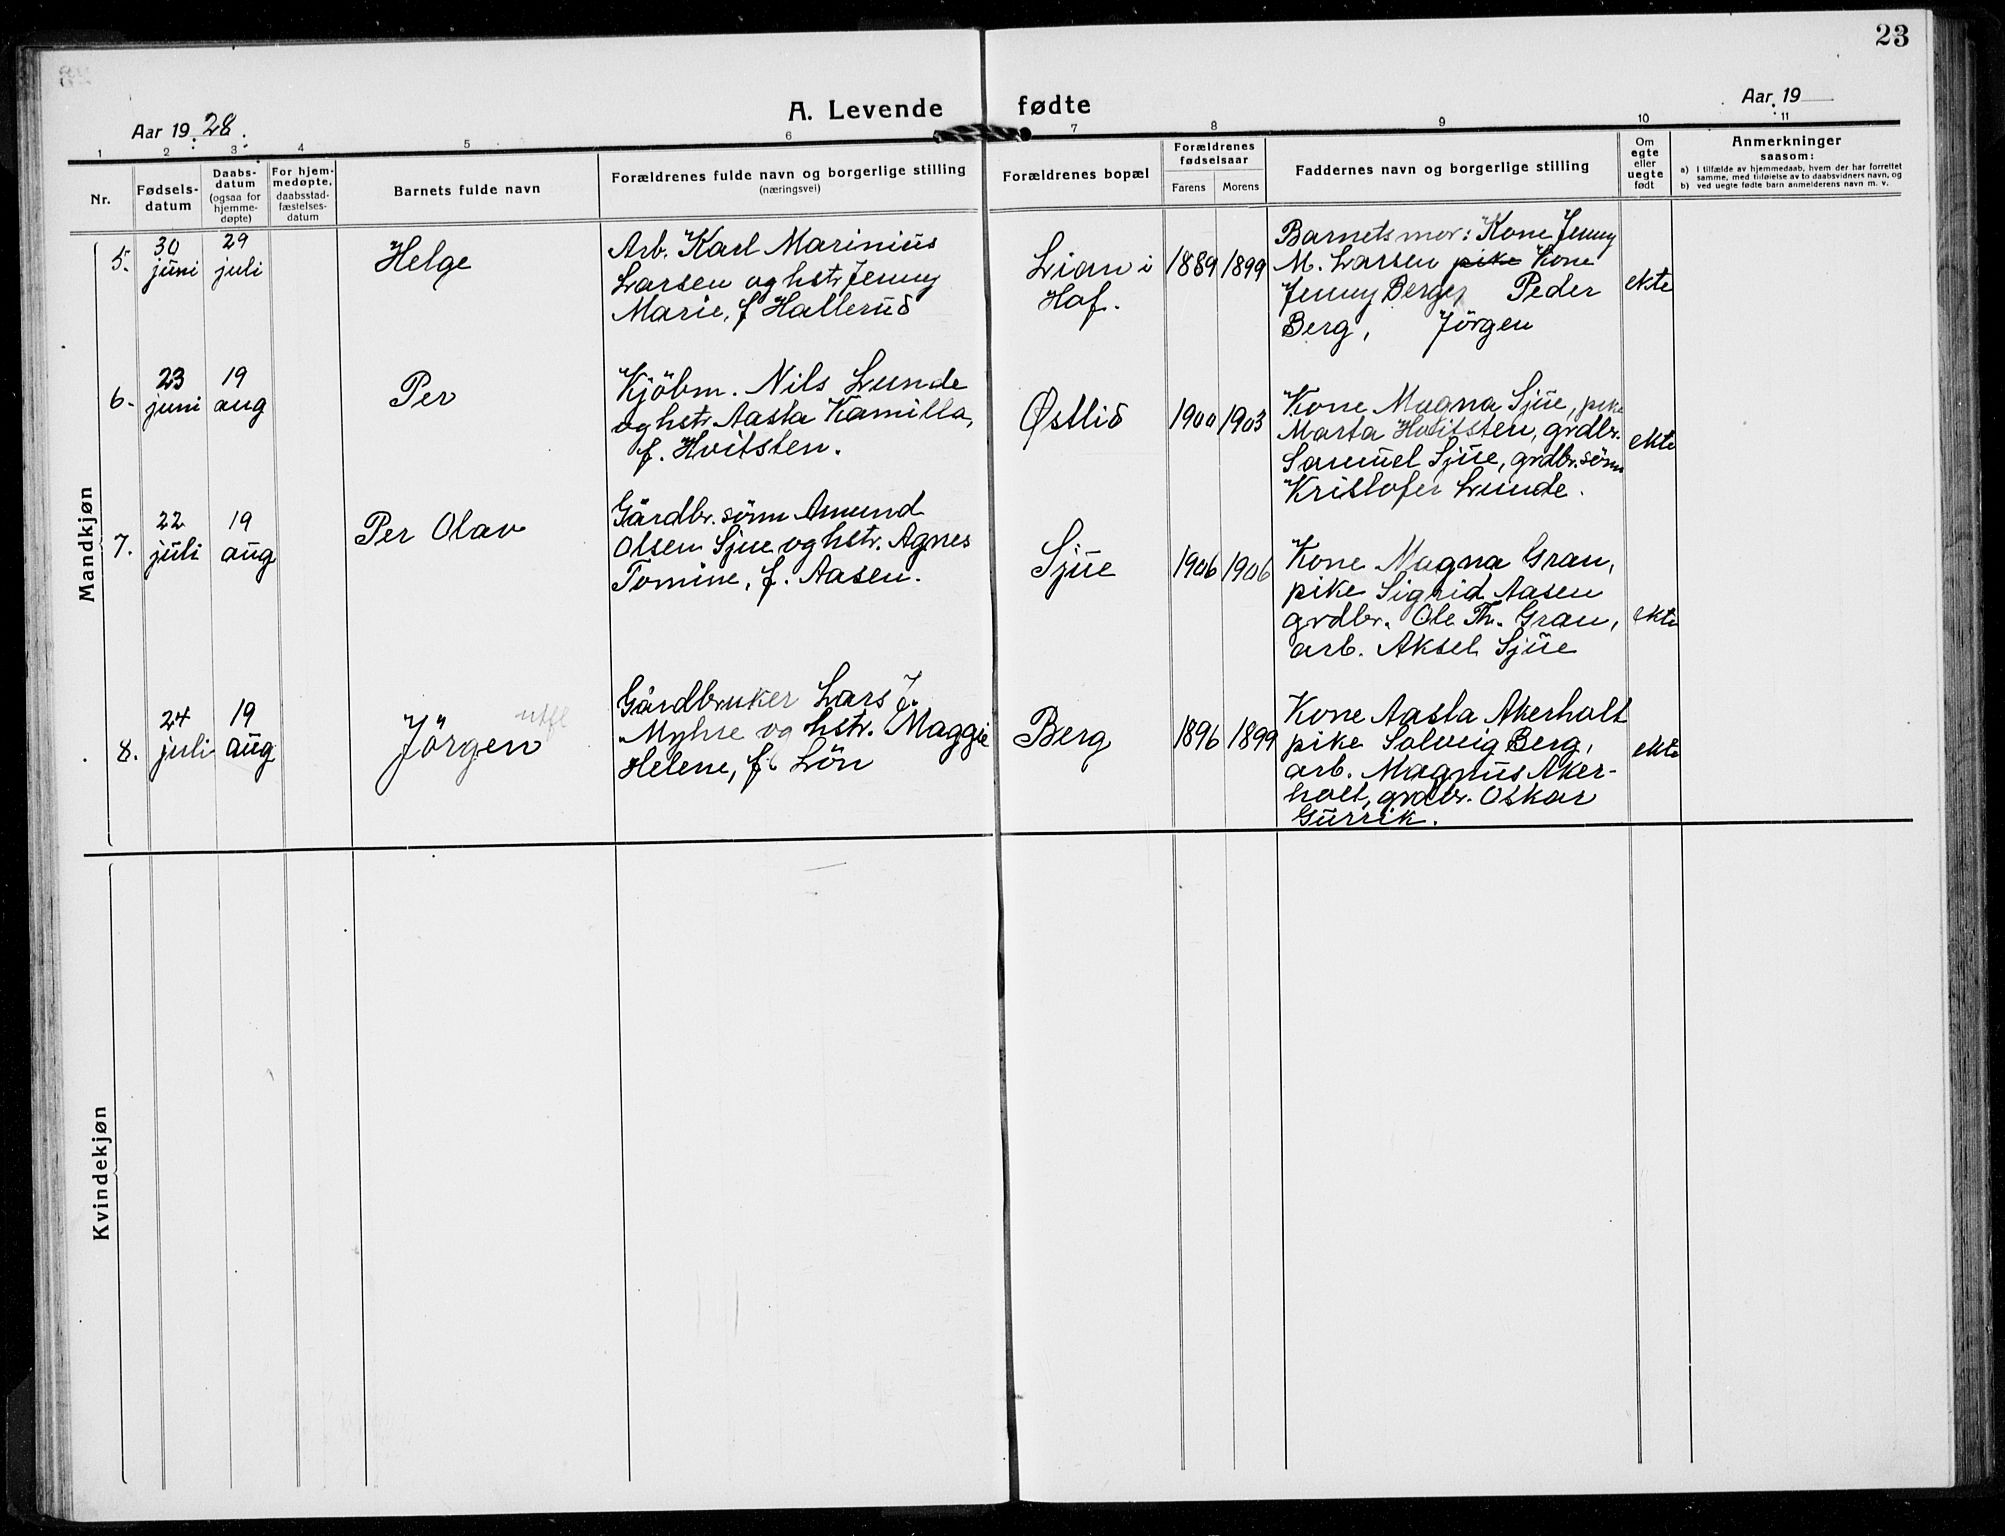 23
A. Levende fødte
Aar 1928.
Aar 19
1 2 3 4 5 6 7 8 9 10 11
Nr.
Fødsels-
datum
Daabs-
datum
(ogsaa for
hjemme-
døpte)
For hjem-
medøpte,
daabsstad-
fæstelses-
datum
Barnets fulde navn
Forældrenes fulde navn og borgerlige stilling
(næringsvei)
Forældrenes bopæl
Forældrenes
fødselsaar
Farens Morens
Faddernes navn og borgerlige stilling
Om
egte
eller
uegte
født
Anmerkninger
saasom:
a) I tilfælde av hjemmedaab, hvem der har forrettet
samme, med tilføielse av to daabsvidners navn, og
b) ved uegte fødte barn anmelderens navn m. v.
Mandkjøn
5.
30
juni
29
juli
Helge
Arb. Karl Marinius
Larsen og hstr Jenny
Marie, f Hallerud
Lian i
Hof.
1889 1899
Barnets mor: Kone Jenny
M. Larsen pike Kone
Jenny Berg, Peder
Berg, Jörgen
ekte
6.
23
juni
19
aug
Per
Kjöbm. Nils Lunde
og hstr Aasta Kamilla,
f. Hvitsten.
Østlid
1900 1903
Kone Magna Sjue, pike
Marta Hvitsten, grdbr.
Samuel Sjue, grdbr.sönn
Kristofer Lunde.
ekte
7.
22
juli
19
aug
Per Olav
Gårdbr. sönn Amund
Olsen Sjue og hstr. Agnes
Tomine, f. Aasen.
Sjue
1906 1906
Kone Magna Gran,
pike Sigrid Aasen
grdbr. Ole Th. Gran,
arb. Aksel Sjue
ekte
8.
24
juli
19
aug
Jörgen
utfl
Gårdbruker Lars J.
Myhre og hstr. Maggie
Helene, f. Lön
Berg
1896 1899
Kone Aasta Akerholt
pike Solveig Berg,
arb. Magnus Aker-
holt, grdbr. Oskar
Gurrik.
ekte
Kvindekjøn